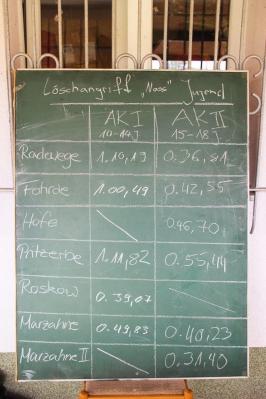 Löschangriff „Nass“ Jugend
AK I AK II
10-14 J 15-18 J
Radewege 1.10,19 0.36,81
Fohrde 1.00,49 0.42,55
Hofe 0.46,70
Pritzerbe 1.11,82 0.55,44
Roskow 0.39,07
Marzahne 0.49,83 0.40,23
Marzahne II 0.31,40